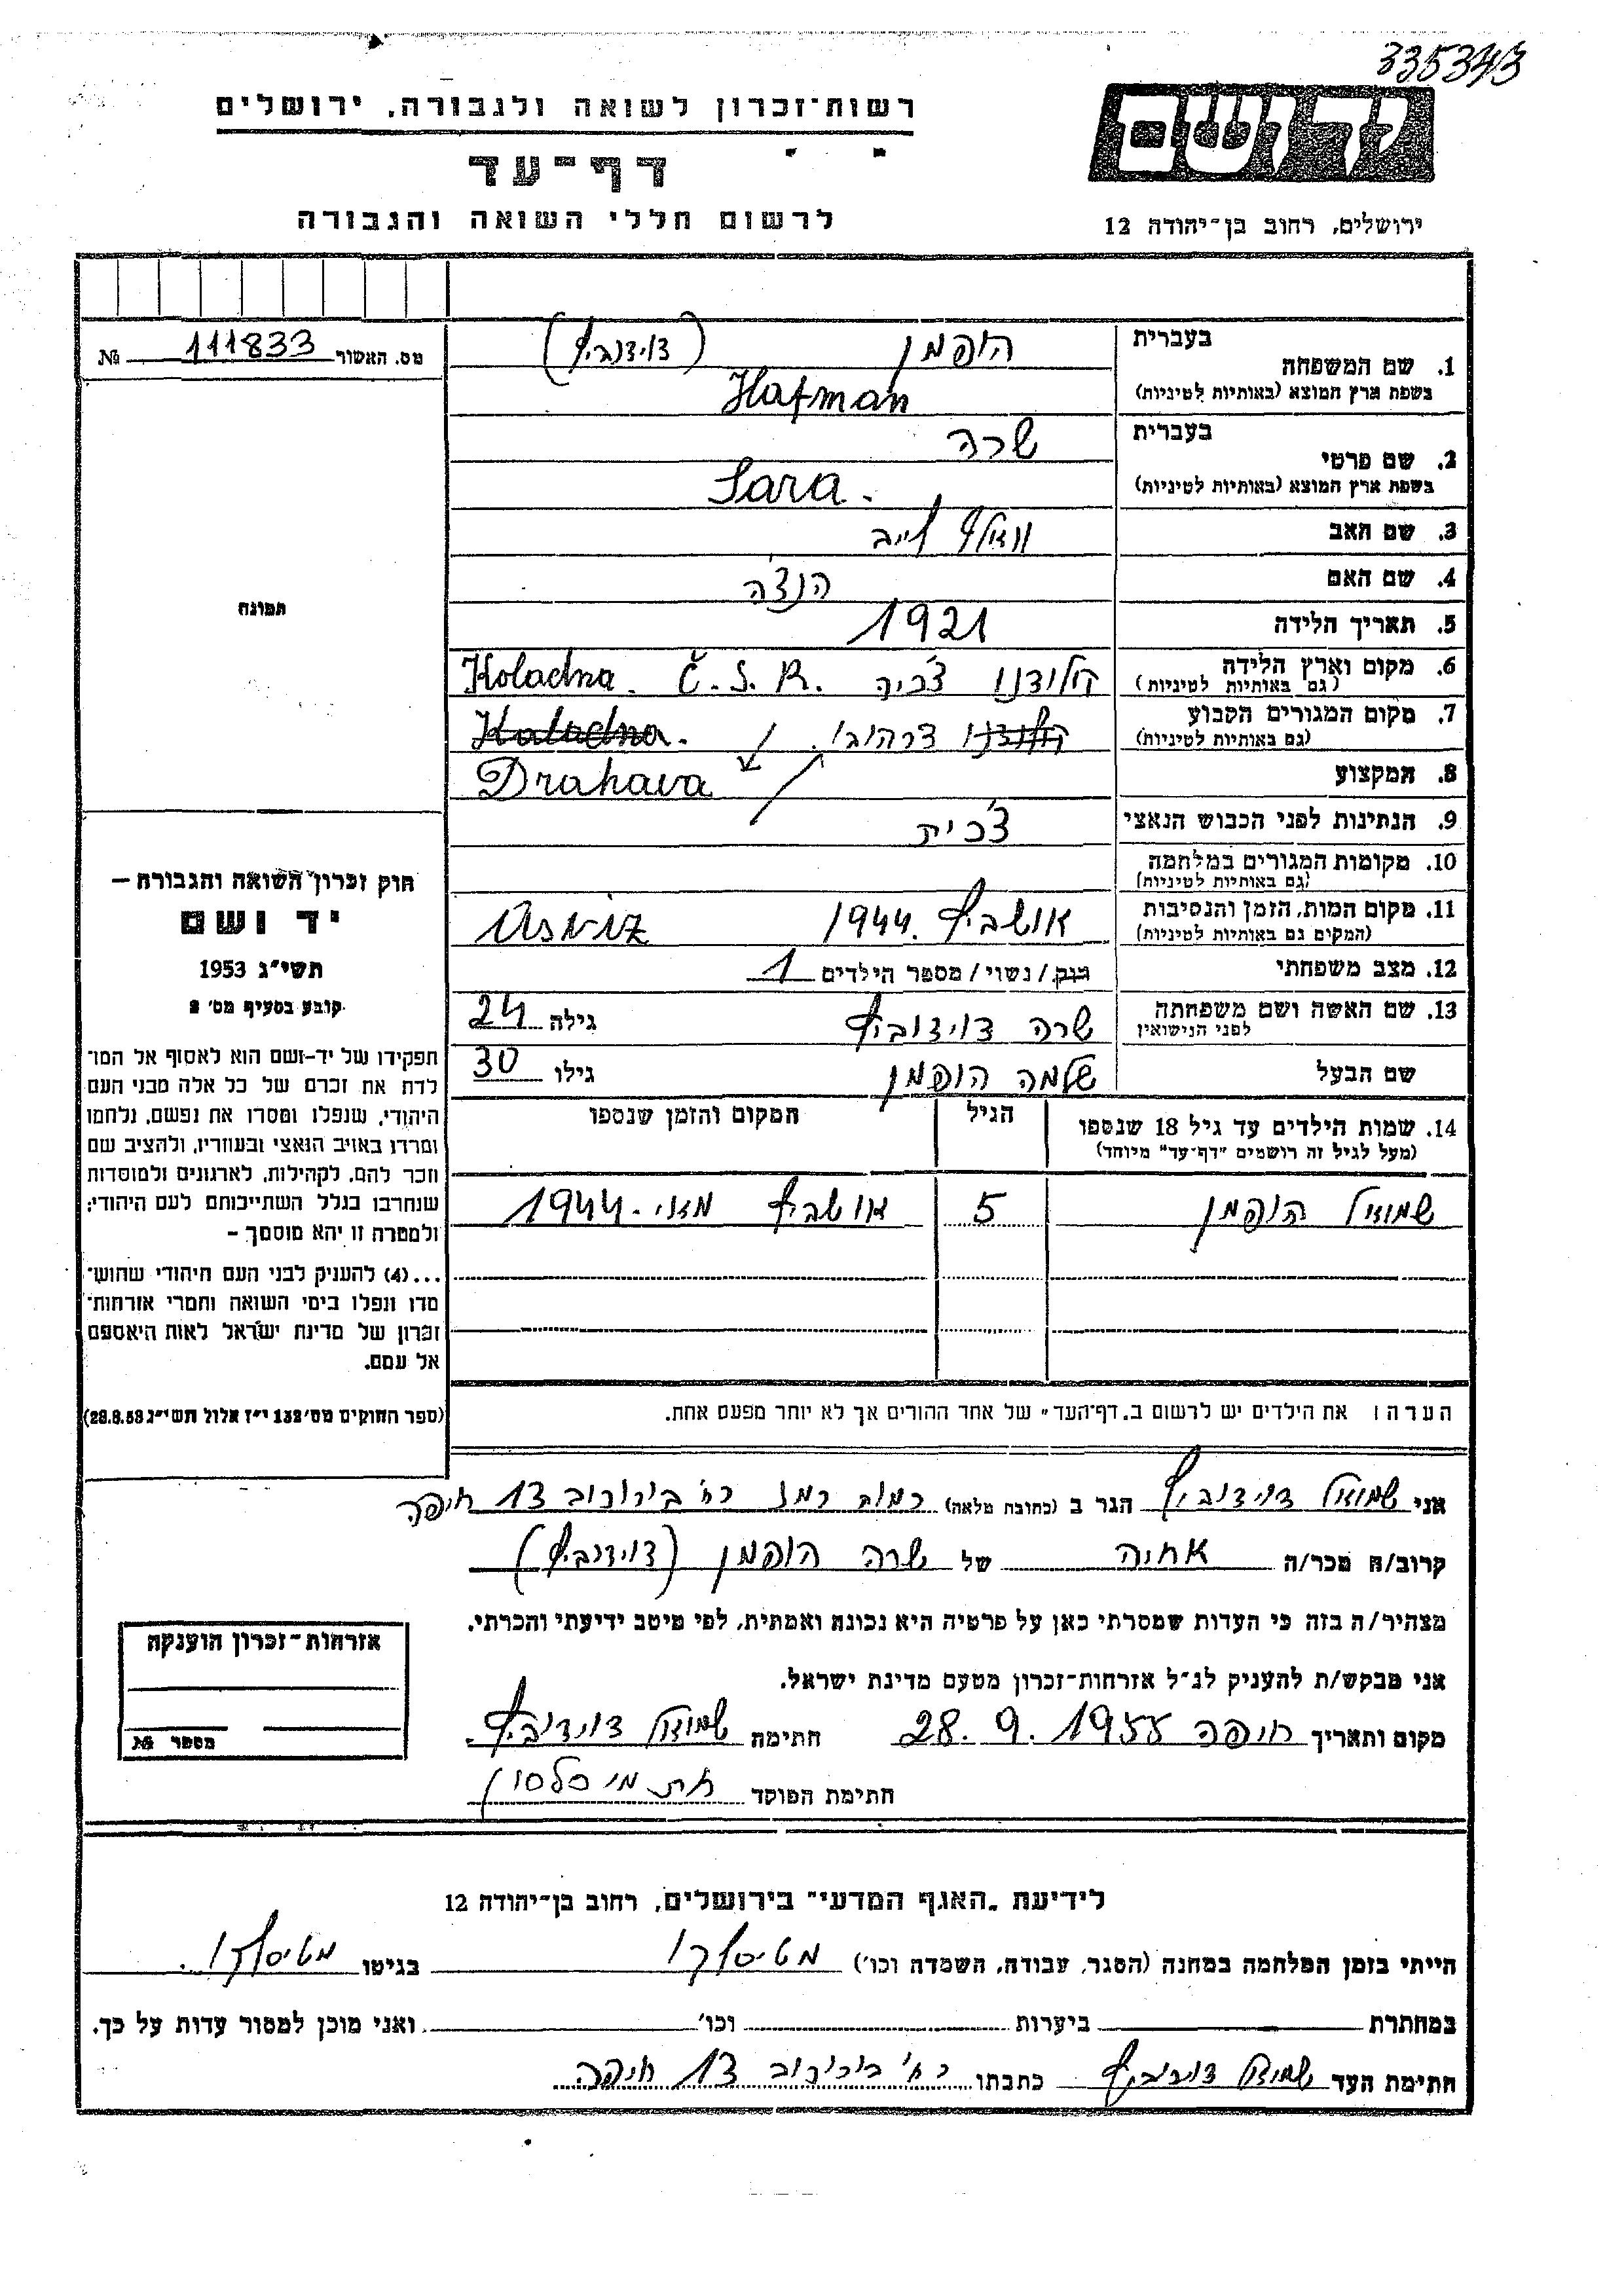 335343
ידושם
רשות־זכרון לשואה ולגבורה, ירושלים
דף־עד
לרשום חללי השואה והגבורה
ירושלים, רחוב בן־יהודה 12
מס. האשור 111833 №
תמונה
בעברית
1. שם המשפחה הופמן (דוידוביץ)
בשפת ארץ המוצא (באותיות לטיניות) Hofman
בעברית
2. שם פרטי שרה
בשפת ארץ המוצא (באותיות לטיניות) Sara.
3. שם האב וואלף לייב
4. שם האם הנצ'ה
5. תאריך הלידה 1921
6. מקום וארץ הלידה קולודנו צ'כיה Č. S. R. Koladna.
(גם באותיות לטיניות)
7. מקום המגורים הקבוע קולודנו דרהובו. Koladna.
(גם באותיות לטיניות)
8. המקצוע Drahava
9. הנתינות לפני הכבוש הנאצי צ'כית
10. מקומות המגורים במלחמה
(גם באותיות לטיניות)
11. מקום המות, הזמן והנסיבות אושביץ 1944. Usviz
(המקום גם באותיות לטיניות)
12. מצב משפחתי רוק / נשוי / מספר הילדים 1
13. שם האשה ושם משפחתה שרה דוידוביץ גילה 24
לפני הנישואין
שם הבעל שלמה הופמן גילו 30
14. שמות הילדים עד גיל 18 שנספו הגיל המקום והזמן שנספו
(מעל לגיל זה רושמים "דף־עד" מיוחד)
שמואל הופמן 5 אושביץ מאי - 1944
הערה: את הילדים יש לרשום ב„דף־העד" של אחד ההורים אך לא יותר מפעם אחת.
חוק זכרון השואה והגבורה –
יד ושם
תשי"ג 1953
קובע בסעיף מס' 2
תפקידו של יד-ושם הוא לאסוף אל המו־
לדת את זכרם של כל אלה מבני העם
היהודי, שנפלו ומסרו את נפשם, נלחמו
ומרדו באויב הנאצי ובעוזריו, ולהציב שם
וזכר להם, לקהילות, לארגונים ולמוסדות
שנחרבו בגלל השתייכותם לעם היהודי;
ולמטרה זו יהא מוסמך –
...(4) להעניק לבני העם היהודי שהוש־
מדו ונפלו בימי השואה והמרי אזרחות־
זכרון של מדינת ישראל לאות היאספם
אל עמם.
(ספר החוקים מס' 132 י"ז אלול תשי"ג 28.8.53)
אני שמואל דוידוביץ הגר ב (כתובת מלאה) רמות רמז רח' בירורוב 13 חיפה
קרוב/ה מכר/ה אחיה של שרה הופמן (דוידוביץ)
מצהיר/ה בזה כי העדות שמסרתי כאן על פרטיה היא נכונה ואמתית, לפי מיטב ידיעתי והכרתי.
אני מבקש/ת להעניק לנ"ל אזרחות־זכרון מטעם מדינת ישראל.
מקום ותאריך חיפה 28. 9. 1955 חתימה שמואל דוידוביץ.
חתימת הפוקד
אזרחות־זכרון הוענקה
מספר №
לידיעת „האגף המדעי" בירושלים, רחוב בן־יהודה 12
הייתי בזמן המלחמה במחנה (הסגר, עבודה, השמדה וכו') בגיטו
במחתרת ביערות וכו' ואני מוכן למסור עדות על כך.
חתימת העד שמואל דוידוביץ כתבתו רח' 13 חיפה